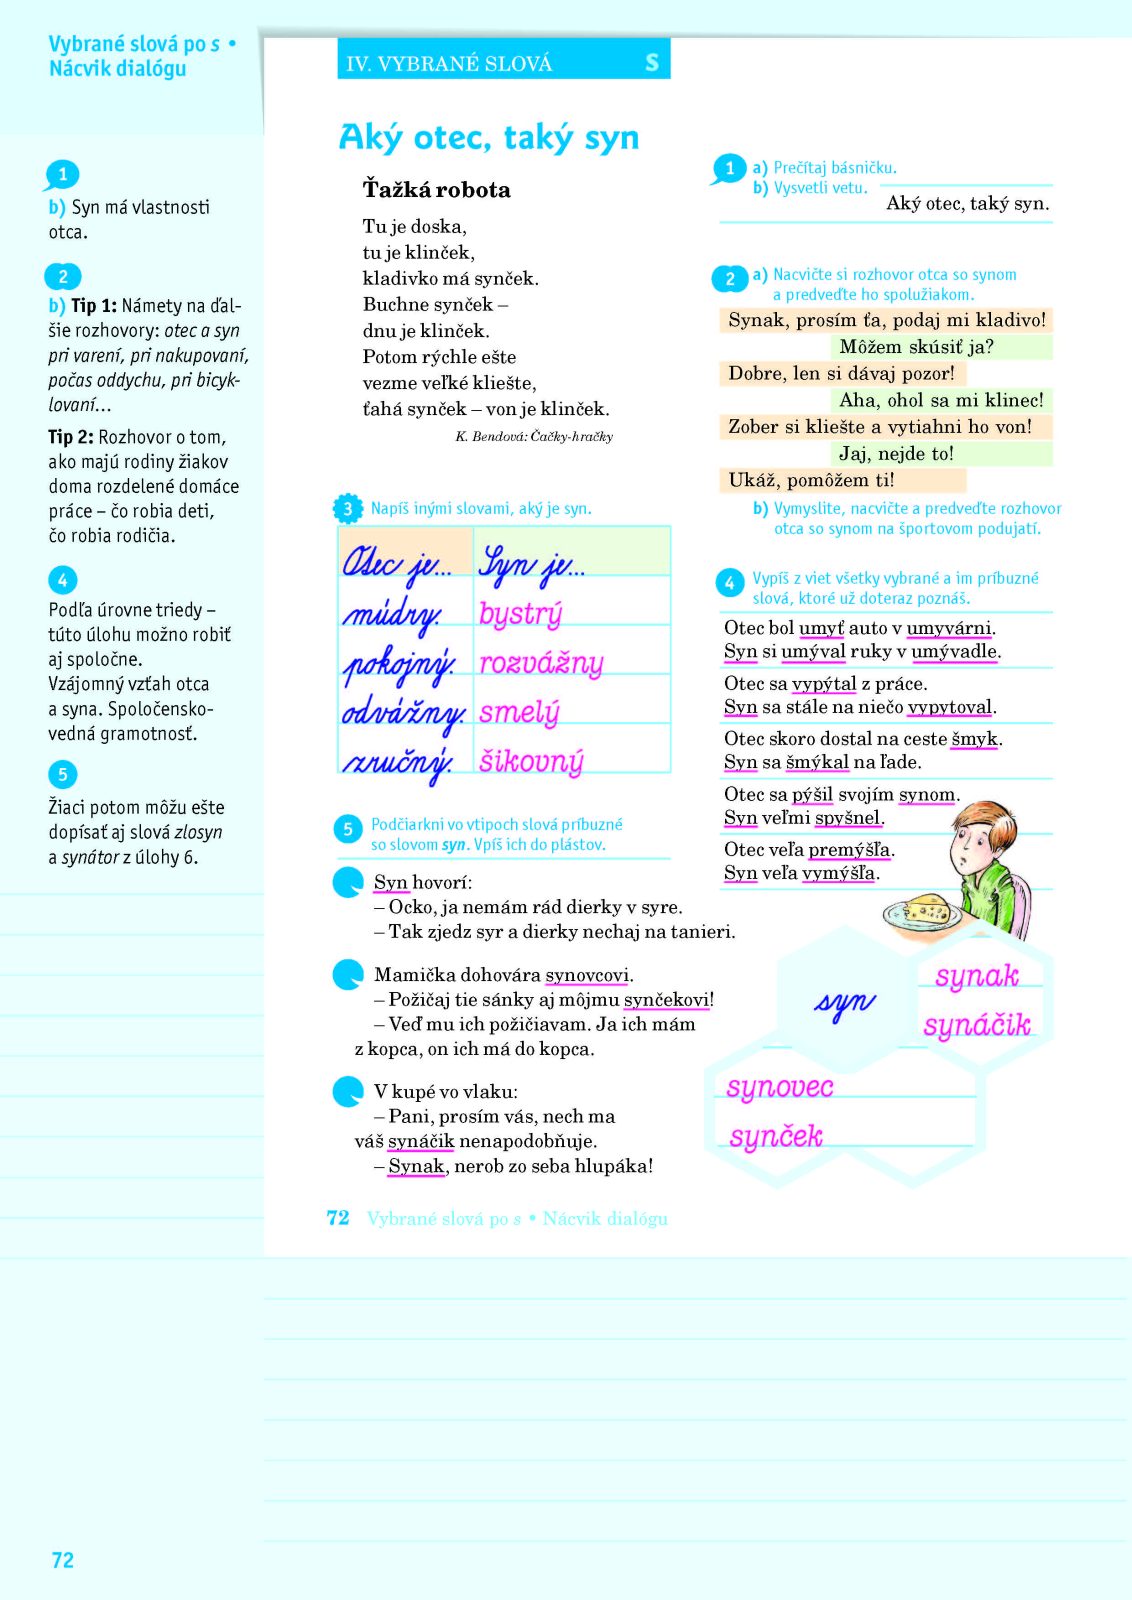 Vybrané slová po s •
Nácvik dialógu
1
b) Syn má vlastnosti
otca.
2
b) Tip 1: Námety na ďal-
šie rozhovory: otec a syn
pri varení, pri nakupovaní,
počas oddychu, pri bicyk-
lovaní...
Tip 2: Rozhovor o tom,
ako majú rodiny žiakov
doma rozdelené domáce
práce – čo robia deti,
čo robia rodičia.
4
Podľa úrovne triedy –
túto úlohu možno robiť
aj spoločne.
Vzájomný vzťah otca
a syna. Spoločensko-
vedná gramotnosť.
5
Žiaci potom môžu ešte
dopísať aj slová zlosyn
a synátor z úlohy 6.
72
IV. VYBRANÉ SLOVÁ S
Aký otec, taký syn
Ťažká robota
Tu je doska,
tu je klinček,
kladivko má synček.
Buchne synček –
dnu je klinček.
Potom rýchle ešte
vezme veľké kliešte,
ťahá synček – von je klinček.
K. Bendová: Čačky-hračky
3 Napíš inými slovami, aký je syn.
Otec je... Syn je...
múdry. bystrý
pokojný. rozvážny
odvážny. smelý
zručný. šikovný
5 Podčiarkni vo vtipoch slová príbuzné
so slovom syn. Vpíš ich do plástov.
Syn hovorí:
– Ocko, ja nemám rád dierky v syre.
– Tak zjedz syr a dierky nechaj na tanieri.
Mamička dohovára synovcovi.
– Požičaj tie sánky aj môjmu synčekovi!
– Veď mu ich požičiavam. Ja ich mám
z kopca, on ich má do kopca.
V kupé vo vlaku:
– Pani, prosím vás, nech ma
váš synáčik nenapodobňuje.
– Synak, nerob zo seba hlupáka!
1 a) Prečítaj básničku.
b) Vysvetli vetu.
Aký otec, taký syn.
2 a) Nacvičte si rozhovor otca so synom
a predveďte ho spolužiakom.
Synak, prosím ťa, podaj mi kladivo!
Môžem skúsiť ja?
Dobre, len si dávaj pozor!
Aha, ohol sa mi klinec!
Zober si kliešte a vytiahni ho von!
Jaj, nejde to!
Ukáž, pomôžem ti!
b) Vymyslite, nacvičte a predveďte rozhovor
otca so synom na športovom podujatí.
4 Vypíš z viet všetky vybrané a im príbuzné
slová, ktoré už doteraz poznáš.
Otec bol umyť auto v umyvárni.
Syn si umýval ruky v umývadle.
Otec sa vypýtal z práce.
Syn sa stále na niečo vypytoval.
Otec skoro dostal na ceste šmyk.
Syn sa šmýkal na ľade.
Otec sa pýšil svojím synom.
Syn veľmi spyšnel.
Otec veľa premýšľa.
Syn veľa vymýšľa.
syn
synak
synáčik
synovec
synček
72 Vybrané slová po s • Nácvik dialógu